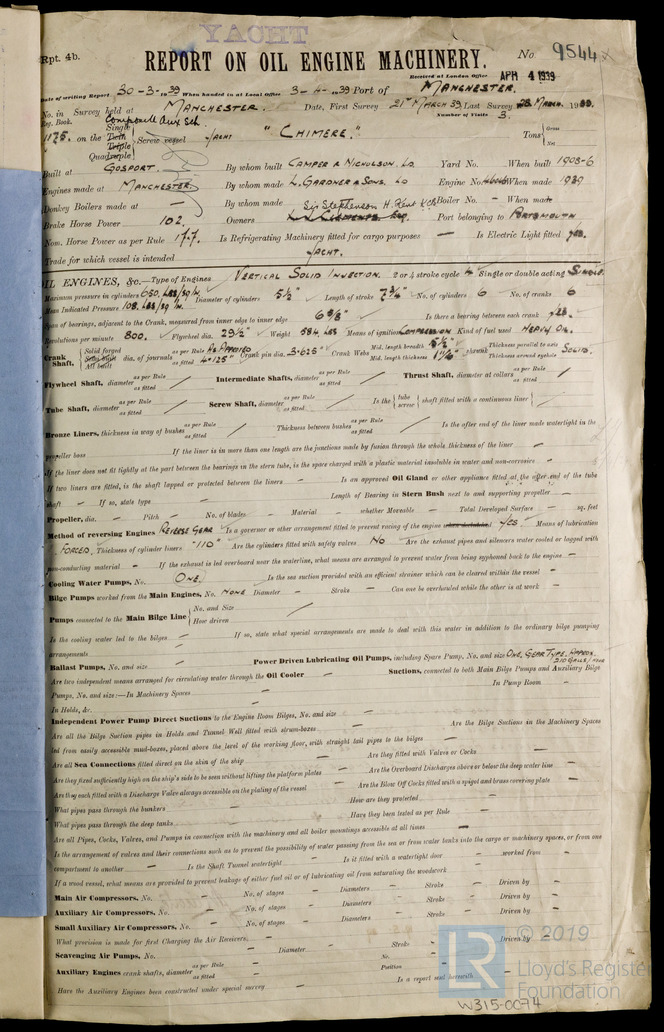 YACHT
Rpt. 4b.
REPORT ON OIL ENGINE MACHINERY.
No. 9544
Received at London Office APR 4 1939
Date of writing Report 30-3-1939 When handed in at Local Office 3-4-39 Port of MANCHESTER.
No. in Survey held at MANCHESTER. Date, First Survey 21st MARCH 39 Last Survey 28 March. 1939.
Reg. Book. Number of Visits 3.
Composite Aux Sch
1175. on the Single Twin Triple Quadruple Screw vessel YACHT "CHIMERE." Tons Gross Net
Built at GOSPORT. By whom built CAMPER & NICHOLSON. LD Yard No. When built 1903-6
Engines made at MANCHESTER. By whom made L. GARDNER & SONS. LD Engine No. When made 1939
Donkey Boilers made at — By whom made — Boiler No. — When made
Brake Horse Power 102. Owners Sir Stephenson H. Kent KCB Port belonging to PORTSMOUTH
Nom. Horse Power as per Rule 17.7. Is Refrigerating Machinery fitted for cargo purposes — Is Electric Light fitted YES.
Trade for which vessel is intended YACHT.
OIL ENGINES, &c.—Type of Engines VERTICAL SOLID INJECTION. 2 or 4 stroke cycle 4 Single or double acting SINGLE.
Maximum pressure in cylinders 650 LBS/SQ IN. Diameter of cylinders 5½" Length of stroke 7¾" No. of cylinders 6 No. of cranks 6
Mean Indicated Pressure 108. LBS/SQ IN.
Span of bearings, adjacent to the Crank, measured from inner edge to inner edge Is there a bearing between each crank YES.
Revolutions per minute 800. Flywheel dia. 29½" Weight 584. LBS Means of ignition COMPRESSION Kind of fuel used HEAVY OIL.
Crank Shaft, Solid forged Semi built All built dia. of journals as per Rule AS APPROVED as fitted 4.125" Crank pin dia. 3.625" Crank Webs Mid. length breadth 5½" Mid. length thickness shrunk Thickness parallel to axis Thickness around eyehole SOLID.
Flywheel Shaft, diameter as per Rule as fitted Intermediate Shafts, diameter as per Rule as fitted Thrust Shaft, diameter at collars as per Rule as fitted
Tube Shaft, diameter as per Rule as fitted Screw Shaft, diameter as per Rule as fitted Is the tube screw shaft fitted with a continuous liner
Bronze Liners, thickness in way of bushes as per Rule as fitted Thickness between bushes as per Rule as fitted Is the after end of the liner made watertight in the
propeller boss If the liner is in more than one length are the junctions made by fusion through the whole thickness of the liner —
If the liner does not fit tightly at the part between the bearings in the stern tube, is the space charged with a plastic material insoluble in water and non-corrosive —
If two liners are fitted, is the shaft lapped or protected between the liners — Is an approved Oil Gland or other appliance fitted at the after end of the tube
shaft — If so, state type — Length of Bearing in Stern Bush next to and supporting propeller —
Propeller, dia. — Pitch — No. of blades — Material — whether Moveable — Total Developed Surface — sq. feet
Method of reversing Engines REVERSE GEAR Is a governor or other arrangement fitted to prevent racing of the engine when declutched YES. Means of lubrication
FORCED. Thickness of cylinder liners ·110" Are the cylinders fitted with safety valves NO Are the exhaust pipes and silencers water cooled or lagged with
non-conducting material — If the exhaust is led overboard near the waterline, what means are arranged to prevent water from being syphoned back to the engine —
Cooling Water Pumps, No. ONE. Is the sea suction provided with an efficient strainer which can be cleared within the vessel —
Bilge Pumps worked from the Main Engines, No. NONE Diameter — Stroke — Can one be overhauled while the other is at work —
Pumps connected to the Main Bilge Line No. and Size How driven
Is the cooling water led to the bilges — If so, state what special arrangements are made to deal with this water in addition to the ordinary bilge pumping
arrangements —
Ballast Pumps, No. and size — Power Driven Lubricating Oil Pumps, including Spare Pump, No. and size ONE, GEAR TYPE. APPROX.
Are two independent means arranged for circulating water through the Oil Cooler — Suctions, connected to both Main Bilge Pumps and Auxiliary Bilge
Pumps, No. and size:—In Machinery Spaces — In Pump Room —
In Holds, &c. —
Independent Power Pump Direct Suctions to the Engine Room Bilges, No. and size —
Are all the Bilge Suction pipes in Holds and Tunnel Well fitted with strum-boxes — Are the Bilge Suctions in the Machinery Spaces
led from easily accessible mud-boxes, placed above the level of the working floor, with straight tail pipes to the bilges —
Are all Sea Connections fitted direct on the skin of the ship — Are they fitted with Valves or Cocks —
Are they fixed sufficiently high on the ship's side to be seen without lifting the platform plates — Are the Overboard Discharges above or below the deep water line —
Are they each fitted with a Discharge Valve always accessible on the plating of the vessel — Are the Blow Off Cocks fitted with a spigot and brass covering plate —
What pipes pass through the bunkers — How are they protected —
What pipes pass through the deep tanks — Have they been tested as per Rule —
Are all Pipes, Cocks, Valves, and Pumps in connection with the machinery and all boiler mountings accessible at all times —
Is the arrangement of valves and their connections such as to prevent the possibility of water passing from the sea or from water tanks into the cargo or machinery spaces, or from one
compartment to another — Is the Shaft Tunnel watertight — Is it fitted with a watertight door — worked from —
If a wood vessel, what means are provided to prevent leakage of either fuel oil or of lubricating oil from saturating the woodwork —
Main Air Compressors, No. — No. of stages — Diameters — Stroke — Driven by —
Auxiliary Air Compressors, No. — No. of stages — Diameters — Stroke — Driven by —
Small Auxiliary Air Compressors, No. — No. of stages — Diameters — Stroke — Driven by —
What provision is made for first Charging the Air Receivers —
Scavenging Air Pumps, No. — Diameter — Stroke — Driven by —
Auxiliary Engines crank shafts, diameter as per Rule as fitted — No. — Position —
Have the Auxiliary Engines been constructed under special survey — Is a report sent herewith —
© 2019
LR Lloyd's Register
Foundation
W315-0074